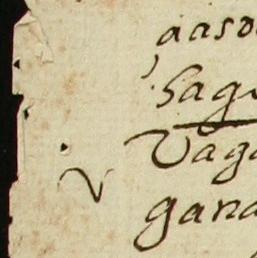 aaso
sagu
v Vaga
gana